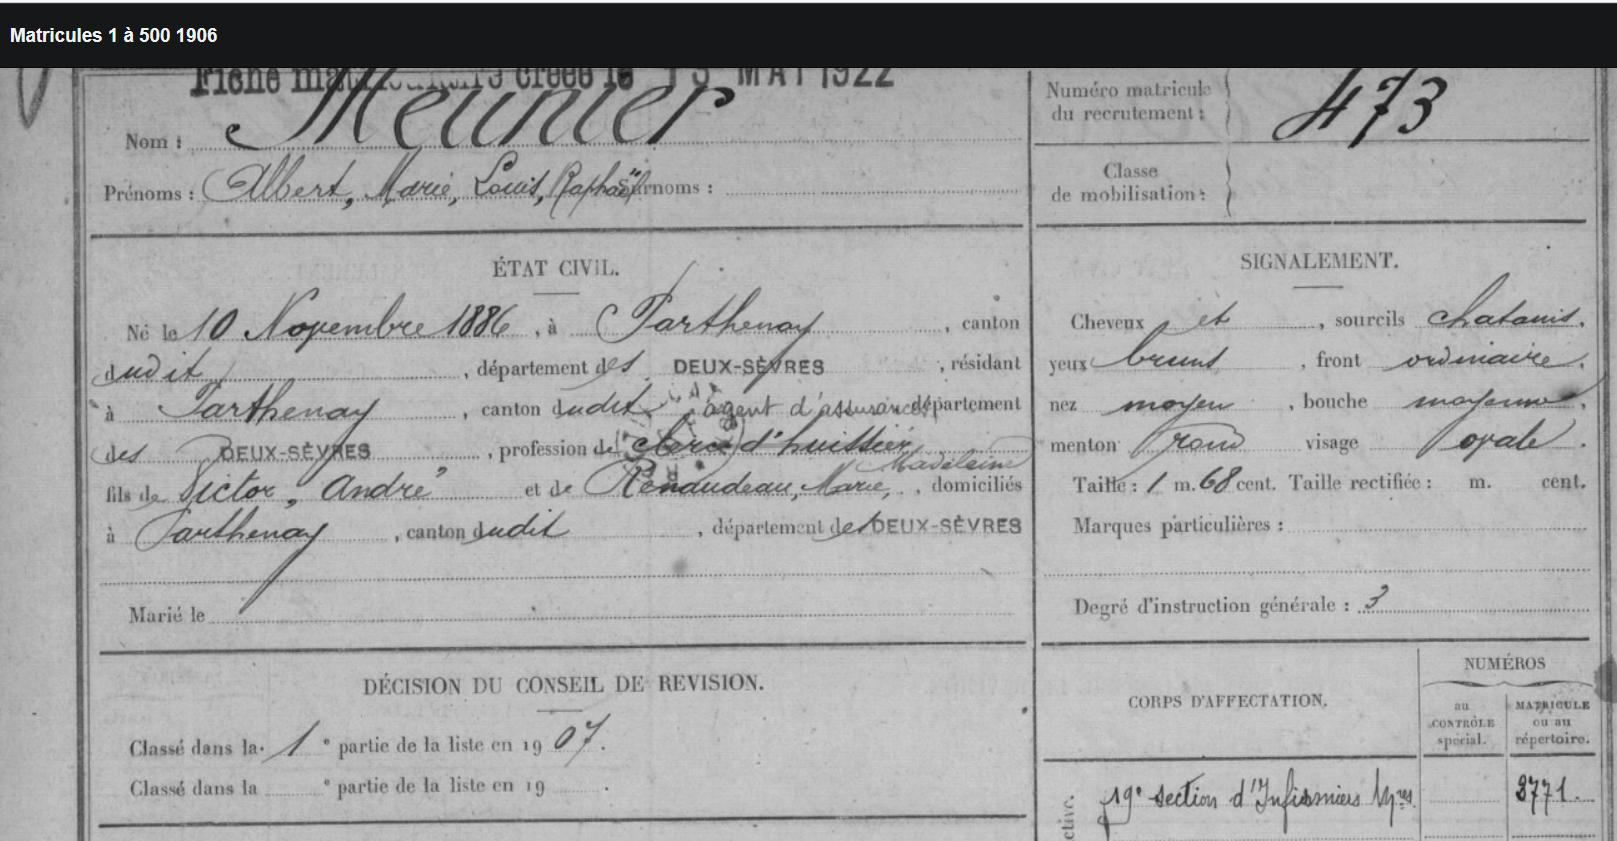 Matricules 1 à 500 1906
Fiche matriculaire créée le 13 MAI 1922
Nom : Meunier
Prénoms : Albert, Marie, Louis, Raphaël Surnoms :
Numéro matricule
du recrutement : 473
Classe
de mobilisation :
ÉTAT CIVIL.
Né le 10 Novembre 1886, à Parthenay, canton
dudit, département des DEUX-SÈVRES, résidant
à Parthenay, canton dudit, agent d'assurances département
des DEUX-SÈVRES, profession de clerc d'huissier
Madeleine
fils de Victor, André et de Renaudeau, Marie, , domiciliés
à Parthenay, canton dudit, département des DEUX-SÈVRES
Marié le
SIGNALEMENT.
Cheveux et, sourcils chatains,
yeux bruns, front ordinaire,
nez moyen, bouche moyenne,
menton rond visage ovale.
Taille : 1 m. 68 cent. Taille rectifiée : m. cent.
Marques particulières :
Degré d'instruction générale : 3
DÉCISION DU CONSEIL DE REVISION.
Classé dans la 1e partie de la liste en 1907.
Classé dans la e partie de la liste en 19 .
CORPS D'AFFECTATION.
NUMÉROS
au
CONTRÔLE
spécial.
MATRICULE
ou au
répertoire.
19e section d'Infirmiers Mres
3771.